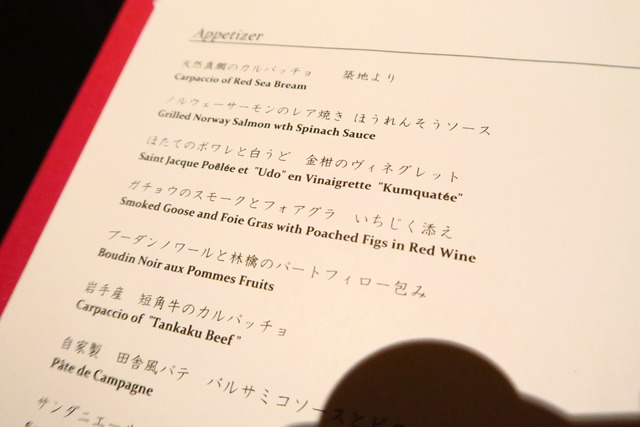 Appetizer
天然真鯛のカルパッチョ　築地より
Carpaccio of Red Sea Bream
ノルウェーサーモンのレア焼き ほうれんそうソース
Grilled Norway Salmon wth Spinach Sauce
ほたてのポワレと白うど　金柑のヴィネグレット
Saint Jacque Poêlée et "Udo" en Vinaigrette "Kumquatée"
ガチョウのスモークとフォアグラ　いちじく添え
Smoked Goose and Foie Gras with Poached Figs in Red Wine
ブーダンノワールと林檎のパートフィロー包み
Boudin Noir aux Pommes Fruits
岩手産　短角牛のカルパッチョ
Carpaccio of "Tankaku Beef"
自家製　田舎風パテ　バルサミコソースと
Pâte de Campagne
サンダニエール